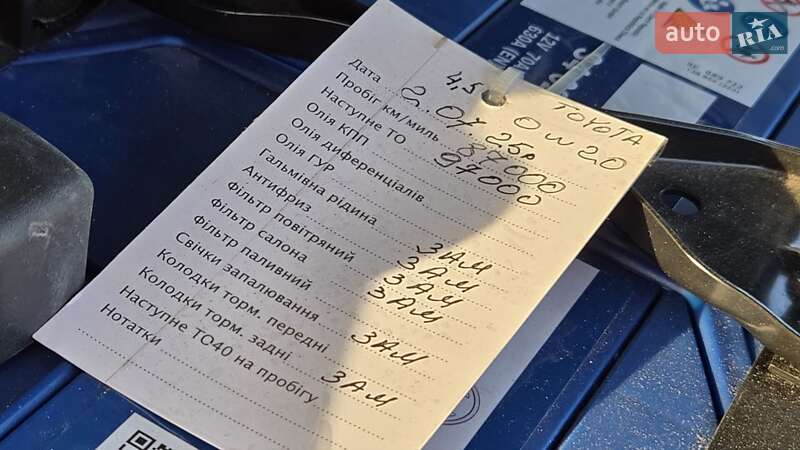 auto RIA.com
12V 70A
630A (EN
4,5 TOYOTA
0w20
Дата 2.07.25р
Пробіг км/миль 87000
Наступне ТО 97000
Олія КПП
Олія диференціалів
Олія ГУР
Гальмівна рідина ЗАМ
Антифриз ЗАМ
Фільтр повітряний ЗАМ
Фільтр салона ЗАМ
Фільтр паливний
Свічки запалювання ЗАМ
Колодки торм. передні
Колодки торм. задні ЗАМ
Наступне ТО40 на пробігу
Нотатки